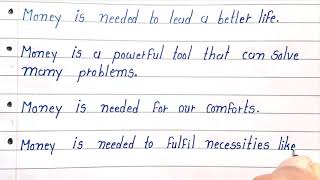 Money is needed to lead a better life.
Money is a powerful tool that can solve
many problems.
Money is needed for our comforts.
Money is needed to fulfil necessities like